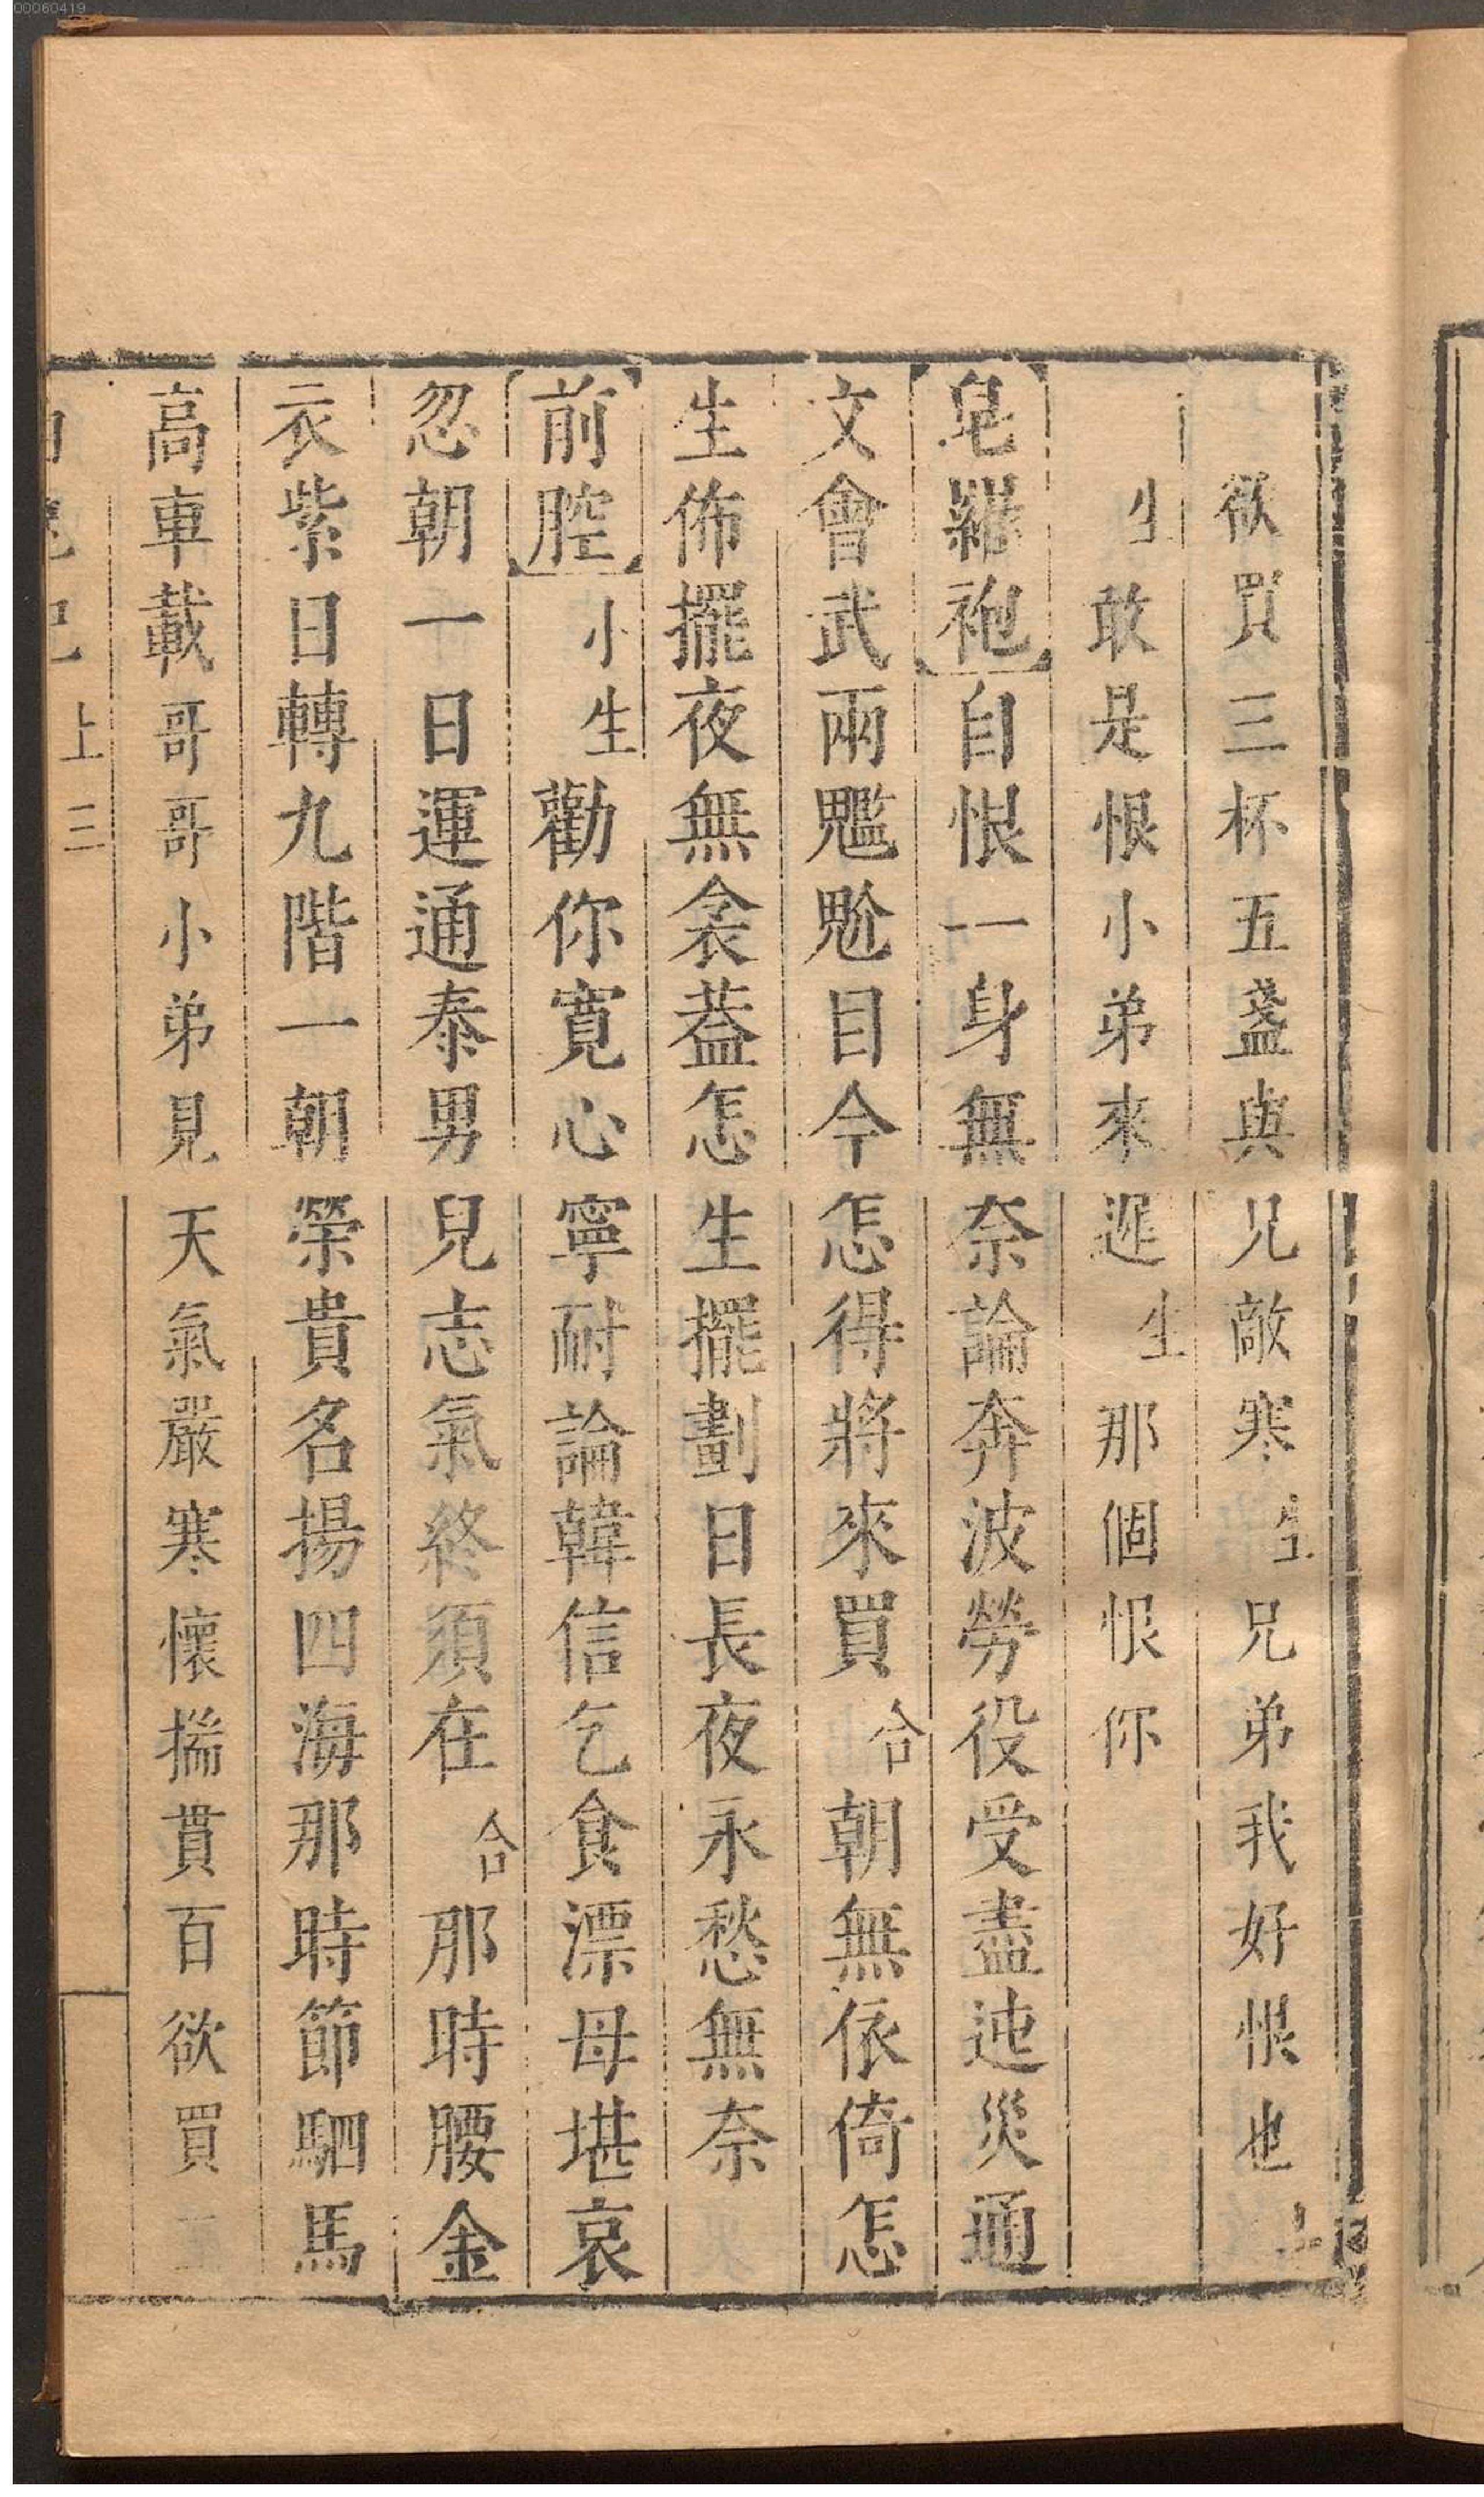 00060419
欲買三杯五盞與兄敵寒生兄弟我好恨也
生敢是恨小弟來遲生那個恨你
皂羅袍自恨一身無奈論奔波勞役受盡迍災通
文會武兩尷尬目今怎得將來買合朝無依倚怎
生佈擺夜無衾蓋怎生擺劃日長夜永愁無奈
前腔小生勸你寬心寧耐論韓信乞食漂母堪哀
忽朝一日運通泰男兒志氣終須在合那時腰金
衣紫日轉九階一朝榮貴名揚四海那時節駟馬
高車載哥哥小弟見天氣嚴寒懷揣貫百欲買三
上三